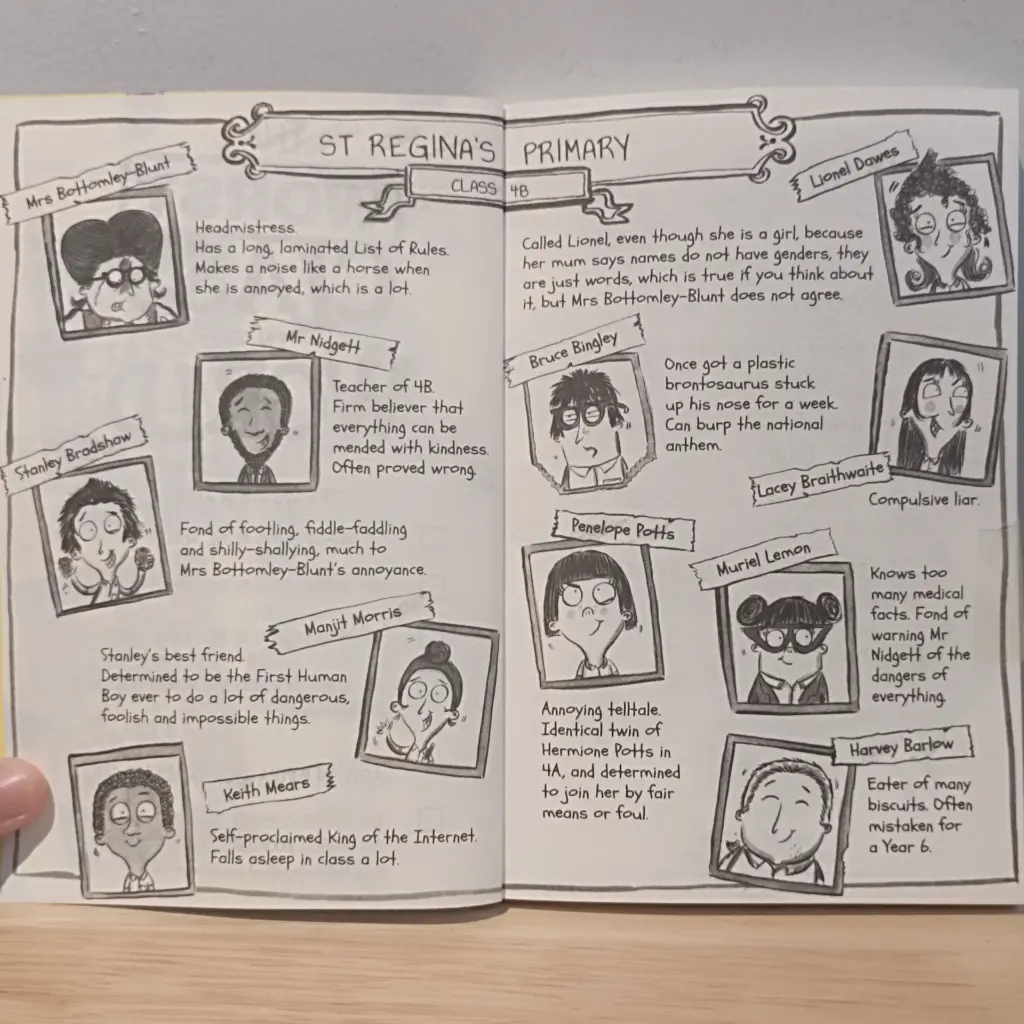 ST REGINA'S PRIMARY
CLASS 4B
Mrs Bottomley-Blunt
Headmistress.
Has a long, laminated List of Rules.
Makes a noise like a horse when
she is annoyed, which is a lot.
Mr Nidgett
Teacher of 4B.
Firm believer that
everything can be
mended with kindness.
Often proved wrong.
Stanley Bradshaw
Fond of footling, fiddle-faddling
and shilly-shallying, much to
Mrs Bottomley-Blunt's annoyance.
Manjit Morris
Stanley's best friend.
Determined to be the First Human
Boy ever to do a lot of dangerous,
foolish and impossible things.
Keith Mears
Self-proclaimed King of the Internet.
Falls asleep in class a lot.
Lionel Dawes
Called Lionel, even though she is a girl, because
her mum says names do not have genders, they
are just words, which is true if you think about
it, but Mrs Bottomley-Blunt does not agree.
Bruce Bingley
Once got a plastic
brontosaurus stuck
up his nose for a week.
Can burp the national
anthem.
Lacey Braithwaite
Compulsive liar.
Penelope Potts
Annoying telltale.
Identical twin of
Hermione Potts in
4A, and determined
to join her by fair
means or foul.
Muriel Lemon
Knows too
many medical
facts. Fond of
warning Mr
Nidgett of the
dangers of
everything.
Harvey Barlow
Eater of many
biscuits. Often
mistaken for
a Year 6.